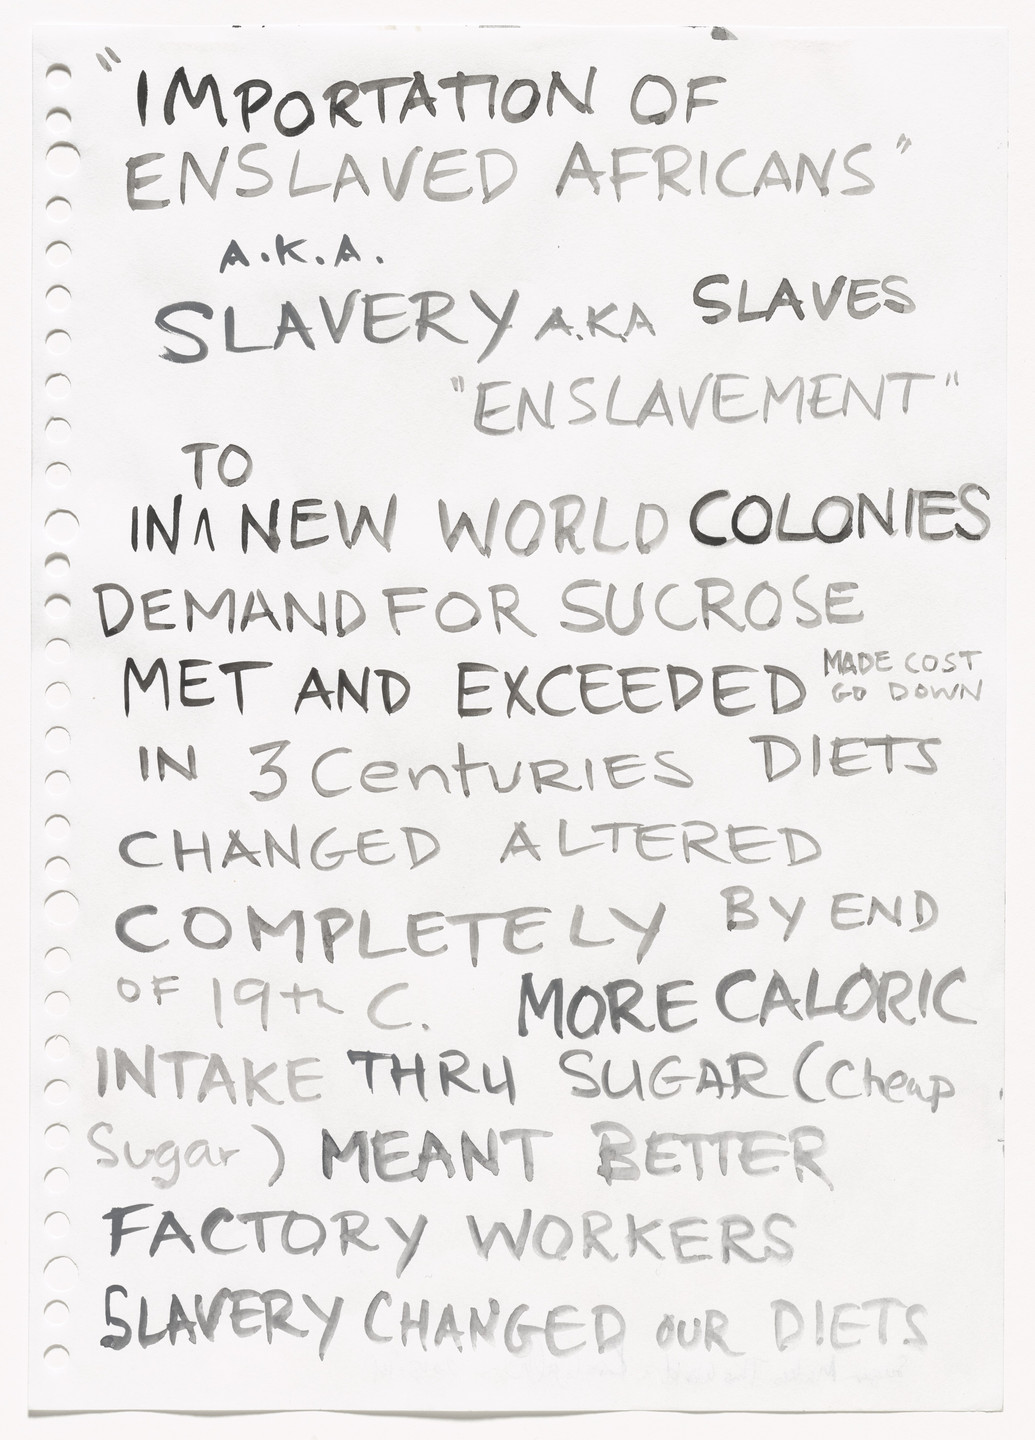 "IMPORTATION OF
ENSLAVED AFRICANS"
A.K.A.
SLAVERY A.K.A SLAVES
"ENSLAVEMENT"
TO
IN ∧ NEW WORLD COLONIES
DEMAND FOR SUCROSE
MET AND EXCEEDED MADE COST
GO DOWN
IN 3 CENTURIES DIETS
CHANGED ALTERED
COMPLETELY BY END
OF 19th C. MORE CALORIC
INTAKE THRU SUGAR (Cheap
Sugar) MEANT BETTER
FACTORY WORKERS
SLAVERY CHANGED OUR DIETS